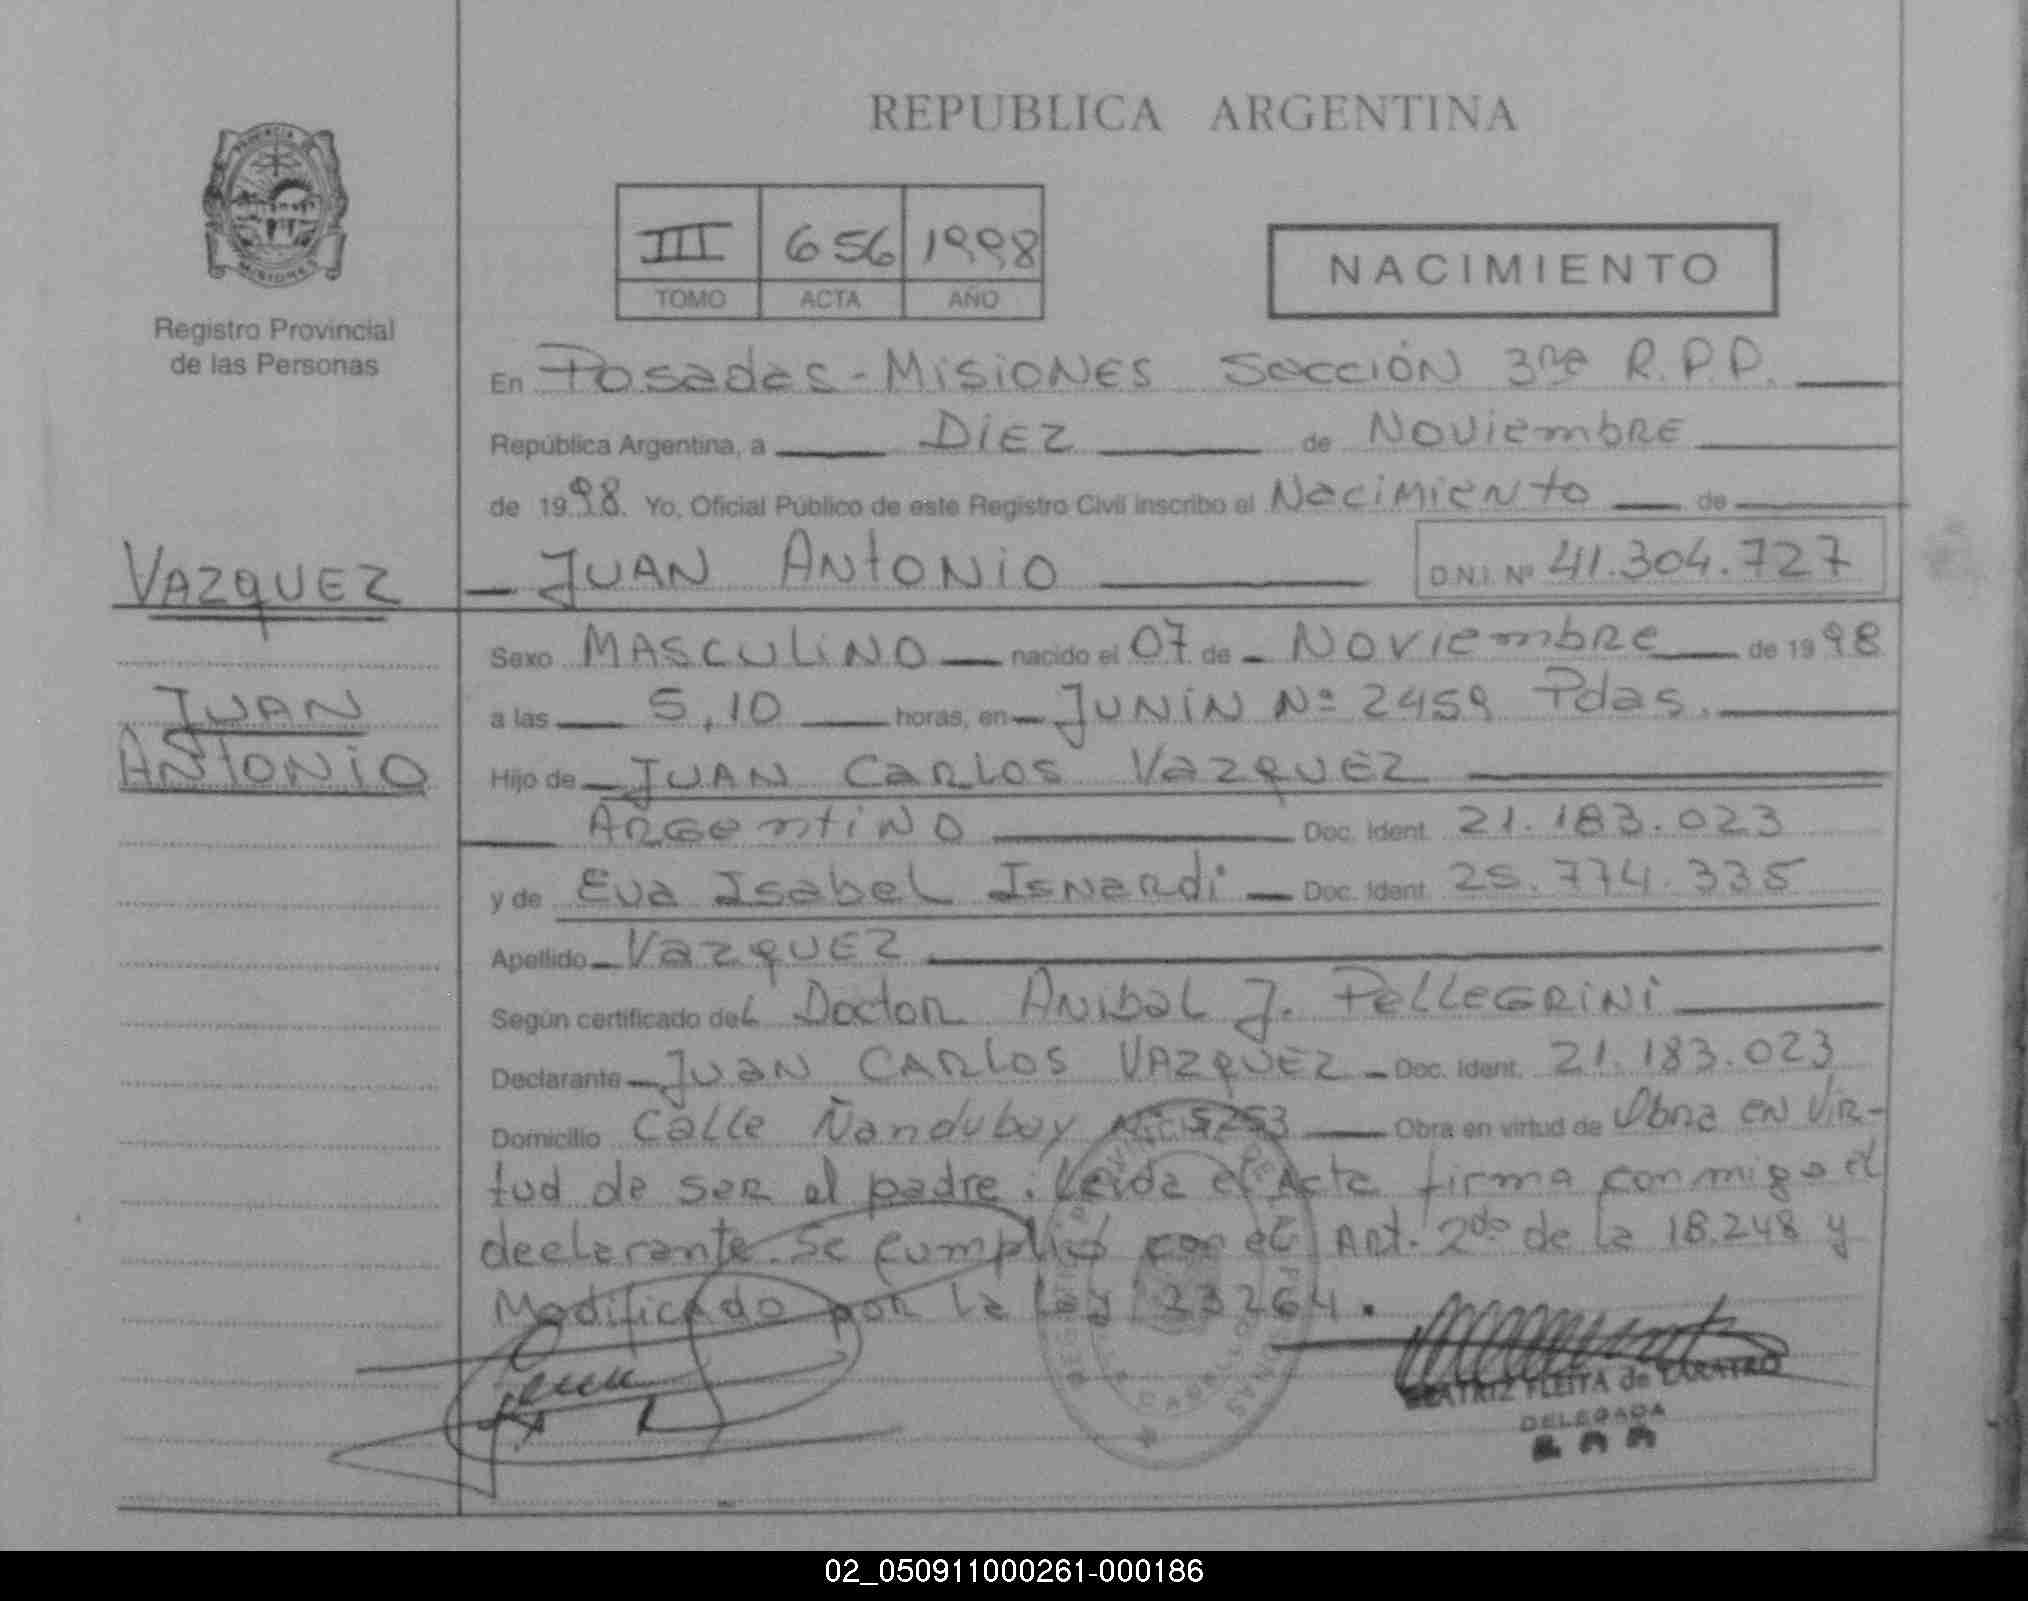 REPUBLICA ARGENTINA
PROVINCIA
MISIONES
Registro Provincial
de las Personas
III 656 1998
TOMO ACTA AÑO
NACIMIENTO
En Posadas - Misiones Sección 3ra R.P.P.
República Argentina, a Diez de Noviembre
de 1998. Yo, Oficial Público de este Registro Civil inscribo el Nacimiento de
VAZQUEZ
JUAN ANTONIO D.N.I. Nº 41.304.727
Sexo MASCULINO nacido el 07 de Noviembre de 1998
JUAN
a las 5,10 horas, en JUNIN Nº 2459 Pdas.
ANTONIO
Hijo de JUAN CARLOS VAZQUEZ
Argentino Doc. Ident. 21.183.023
y de Eva Isabel Isnardi Doc. Ident. 25.774.335
Apellido Vazquez
Según certificado del Doctor Anibal J. Pellegrini
Declarante Juan Carlos Vazquez Doc. Ident. 21.183.023
Domicilio Calle Ñandubay Nº 5253 Obra en virtud de Obra en vir-
tud de ser el padre. Leida el Acta firma conmigo el
declarante. Se cumplió con el Art. 2do de la 18.248 y
Modificado por la Ley 23264.
BEATRIZ FLEITA de
DELEGADA
02_050911000261-000186